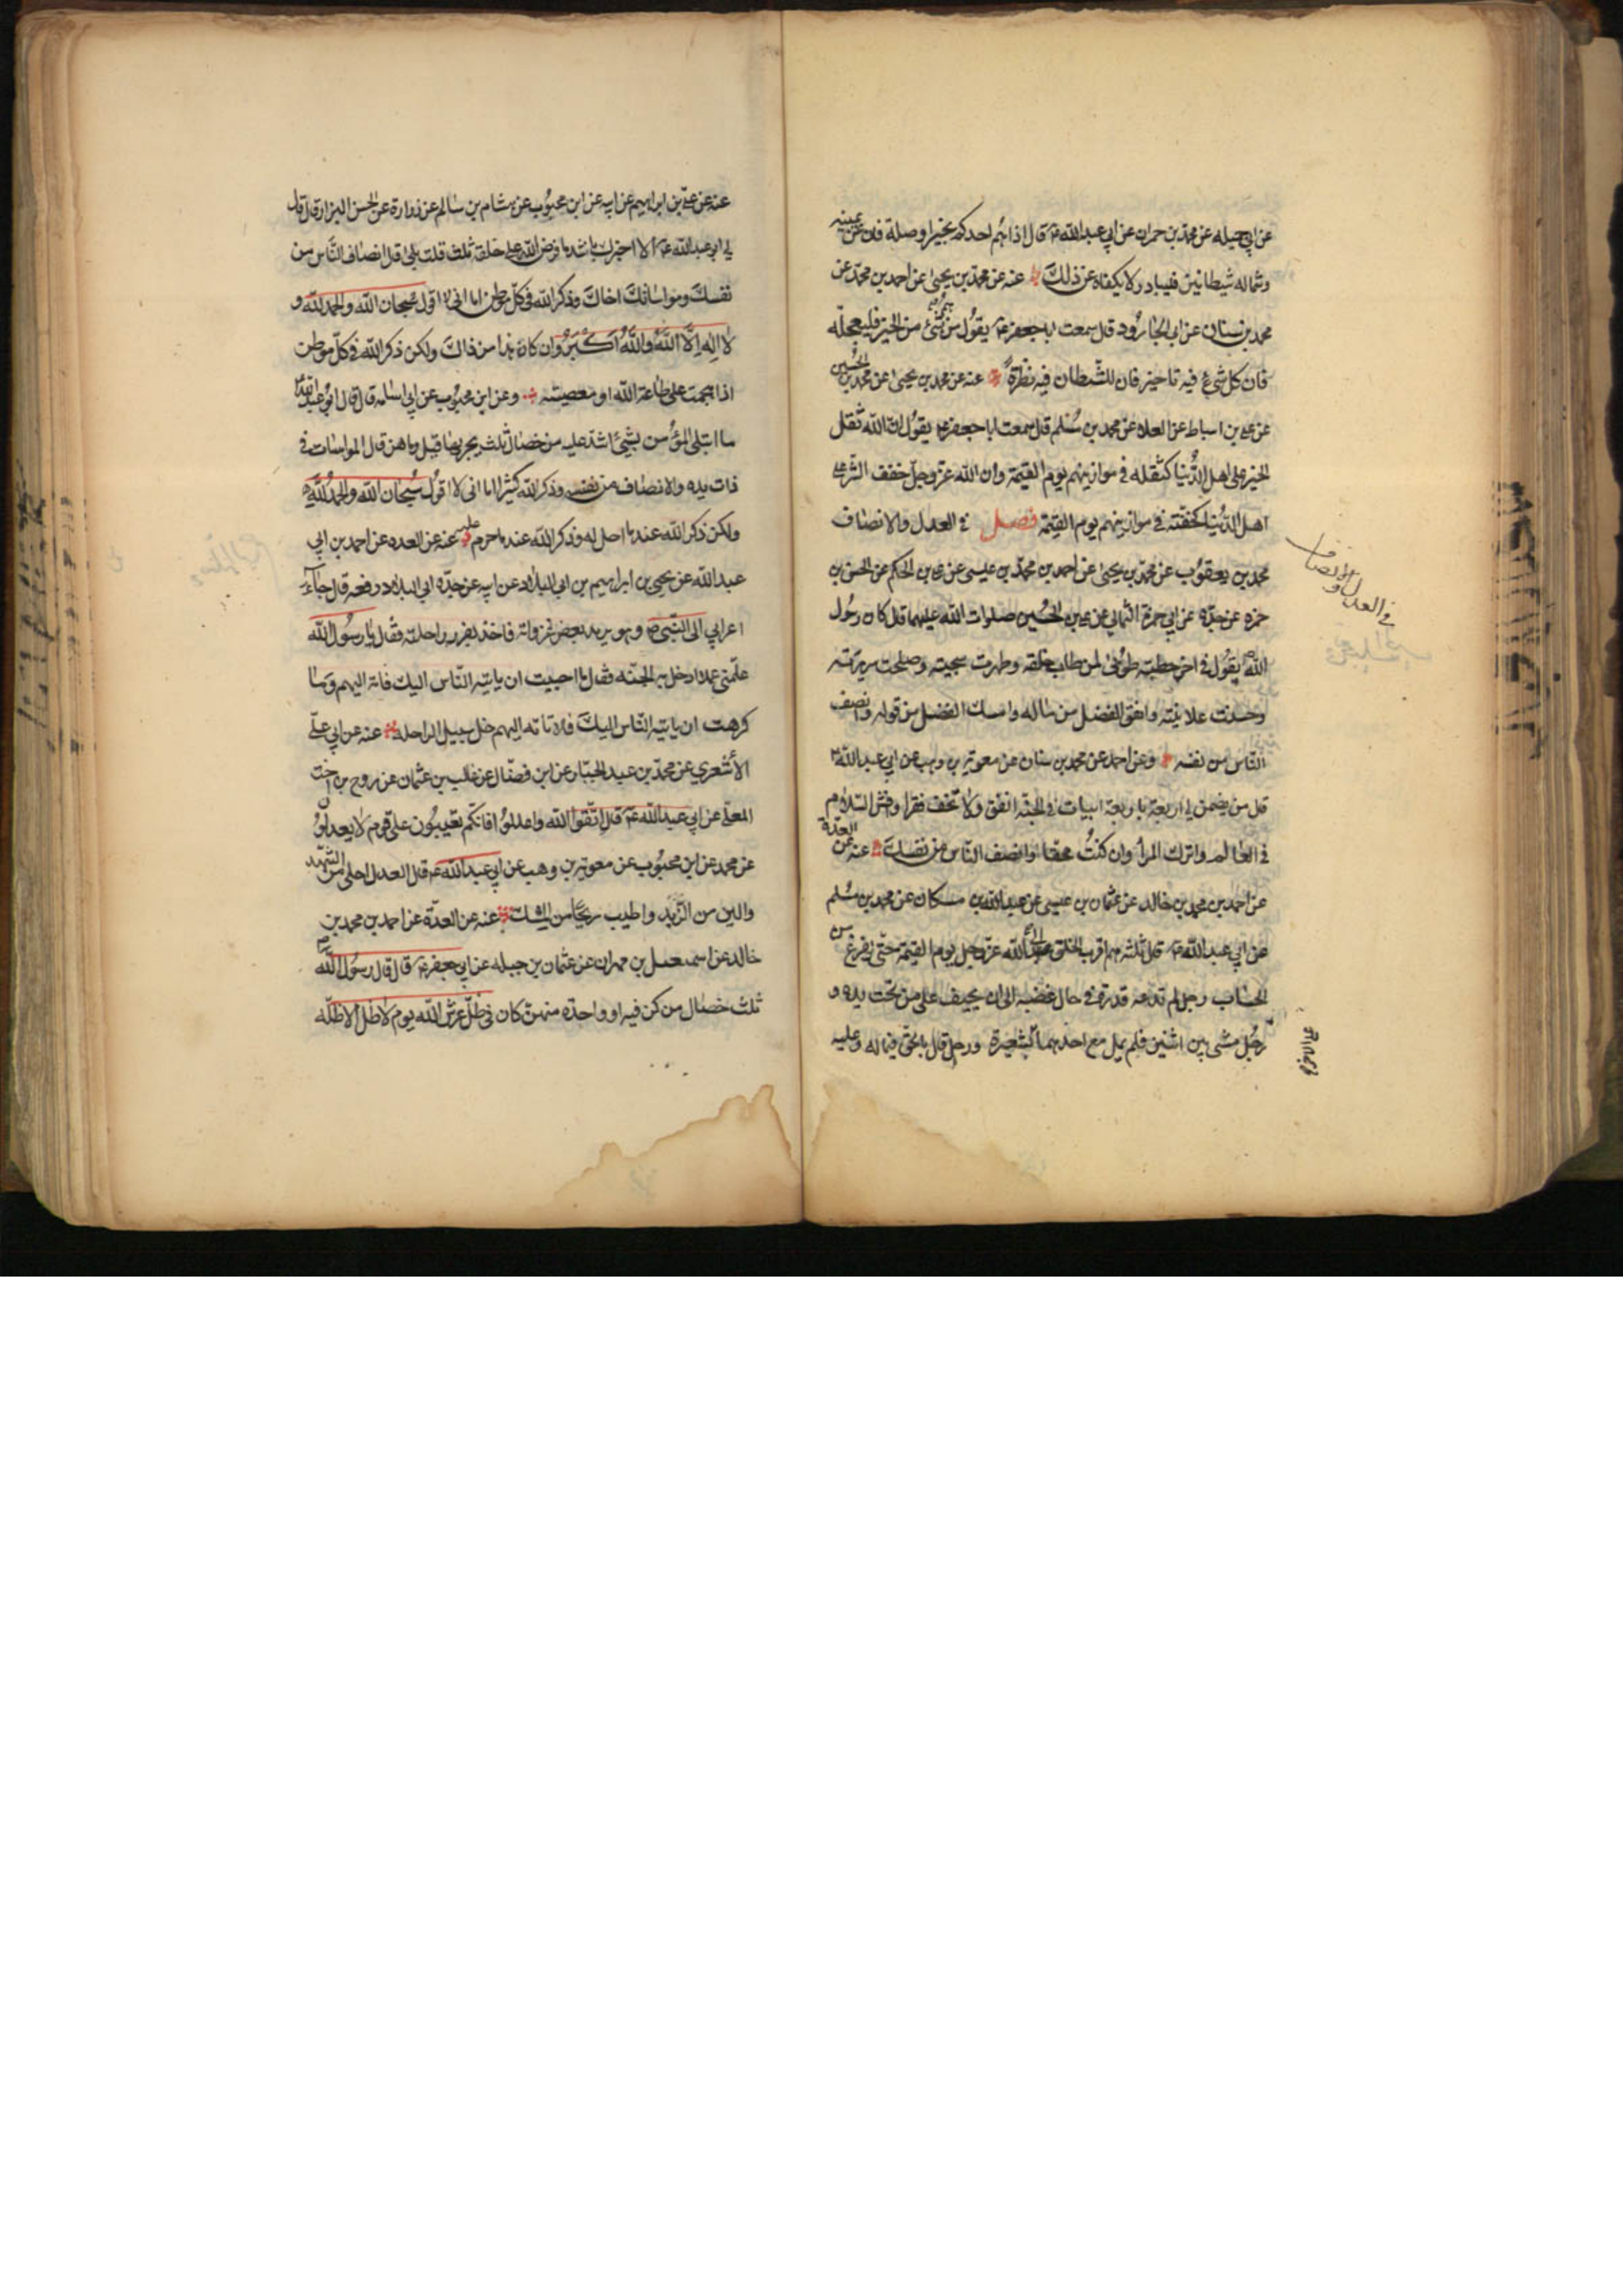 عن ابي جميله عن محمد بن حمران عن ابي عبد الله ع قال اذا هم احدكم بخير او صلة فان عن يمينه
وشماله شيطانين فليبادر لا يكفاه عن ذلك عنه عن محمد بن يحيى عن احمد بن محمد عن
محمد بن سنان عن ابي الجارود قال سمعت ابا جعفر ع يقول من هم بشئ من الخير فليعجله
فان كل شئ فيه تاخير فان للشيطان فيه نظرة عنه عن محمد بن يحيى عن محمد بن الحسين
عن علي بن اسباط عن العلاء عن محمد بن مسلم قال سمعت ابا جعفر ع يقول ان الله ثقل
الخير على اهل الدنيا كثقله في موازينهم يوم القيمة وان الله عز وجل خفف الشر على
اهل الدنيا كخفته في موازينهم يوم القيمة فصل في العدل والانصاف
محمد بن يعقوب عن محمد بن يحيى عن احمد بن محمد بن عيسى عن علي بن الحكم عن الحسن بن
حمزه عن جده عن ابي حمزة الثمالي عن علي بن الحسين صلوات الله عليهما قال كان رسول
الله ص يقول في اخر خطبته طوبى لمن طاب خلقه وطهرت سجيته وصلحت سريرته
وحسنت علانيته وانفق الفضل من ماله وامسك الفضل من قوله وانصف
الناس من نفسه وعن احمد عن محمد بن سنان عن معوية بن وهب عن ابي عبد الله ع
قال من يضمن لي اربعة باربعة ابيات في الجنة انفق ولا تخف فقرا وافش السلام
في العالم واترك المراء وان كنت محقا وانصف الناس من نفسك عنه عن العدة
عن احمد بن محمد بن خالد عن عثمان بن عيسى عن عبد الله بن مسكان عن محمد بن مسلم
عن ابي عبد الله ع قال ثلثه هم اقرب الخلق الى الله عز وجل يوم القيمة حتى يفرغ من
الحساب رجل لم تدعه قدرة في حال غضبه الى ان يحيف على من تحت يده و
رجل مشى بين اثنين فلم يمل مع احدهما بشعيرة ورجل قال بالحق فيما له وعليه
في العدل والانصاف
عنه عن علي بن ابراهيم عن ابيه عن ابن محبوب عن هشام بن سالم عن زرارة عن الحسن البزار قال قال
لي ابو عبد الله ع الا اخبرك باشد ما فرض الله على خلقه ثلث قلت بلى قال انصاف الناس من
نفسك ومواساتك اخاك وذكر الله في كل موطن اما اني لا اقول سبحان الله والحمد لله و
لا اله الا الله والله اكبر وان كان هذا من ذاك ولكن ذكر الله في كل موطن
اذا هجمت على طاعة الله او معصيته وعن ابن محبوب عن ابي اسامه قال قال ابو عبد الله ع
ما ابتلى المؤمن بشئ اشد عليه من خصال ثلث يحرمها قيل وما هن قال المواسات في
ذات يده والانصاف من نفسه وذكر الله كثيرا اما اني لا اقول سبحان الله والحمد لله
ولكن ذكر الله عند ما احل له وذكر الله عند ما حرم عليه عنه عن العده عن احمد بن ابي
عبد الله عن يحيى بن ابراهيم بن ابي البلاد عن ابيه عن جده ابي البلاد رفعه قال جاء
اعرابي الى النبي ص وهو يريد بعض غزواته فاخذ بغرز راحلته وقال يا رسول الله
علمني عملا ادخل به الجنة فقال ما احببت ان ياتيه الناس اليك فاته اليهم وما
كرهت ان ياتيه الناس اليك فلا تاته اليهم خل سبيل الراحله عنه عن ابي علي
الأشعري عن محمد بن عبد الجبار عن ابن فضال عن غالب بن عثمان عن روح بن اخت
المعلى عن ابي عبد الله ع قال اتقوا الله واعدلوا فانكم تعيبون على قوم لا يعدلون
عن محمد عن ابن محبوب عن معوية بن وهب عن ابي عبد الله ع قال العدل احلى من الشهد
والين من الزبد واطيب ريحا من المسك عنه عن العدة عن احمد بن محمد بن
خالد عن اسمعيل بن مهران عن عثمان بن جبله عن ابي جعفر ع قال قال رسول الله ص
ثلث خصال من كن فيه او واحدة منهن كان في ظل عرش الله يوم لا ظل الا ظله